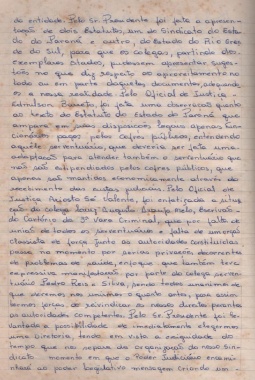 da entidade. Pelo Sr. Presidente foi feita a apresen-
tação de dois Estatutos, um do Sindicato do Esta-
do do Paraná e outro, do Estado do Rio Gran-
de do Sul, para que os colegas, partindo dos
exemplares citados, pudessem apresentar suges-
tões no que diz respeito ao aproveitamento no
todo ou em parte daqueles documentos,
a nossa realidade. Pelo Oficial de Justiça -
Edmilson foi feita uma observação quanto
ao texto do Estatuto do Estado do Paraná que
ampara em suas disposições, apenas
pagos pelos Cofres públicos, entendendo
aquele serventuário, que deveria ser feita uma
adaptação para atender também o serventuário que
não são estipendiados pelos cofres públicos, que
apenas são mantidos economicamente através do
recebimento das custas judiciais. Pelo Oficial de
Justiça Augusto Sé Valente, foi enfatizada a situa-
ção do colega Melo, Escrivão
do Cartório da 3ª Vara Criminal, que por falta de
união de todos os serventuários e falta de uma
classista de força junto as autoridades constituídas
passa no momento por sérias privações decorrentes
de problemas de saúde, enfoque que também teve
expressiva manifestação por parte do colega serven-
tuário Pedro Reis e Silva, sendo todos unânimes de
que devemos nos unirmos o quanto antes, para assu-
mirmos juntos, as reivindicações nosso direito perante
as autoridades competentes. Pelo Sr. Presidente foi le-
vantada a possibilidade de imediatamente elegermos
uma Diretoria, tendo em vista a exiguidade do
tempo que nos separa da organização do nosso Sin-
dicato, momento em que o Poder Judiciário encami-
nhará ao poder legislativo mensagem criando um